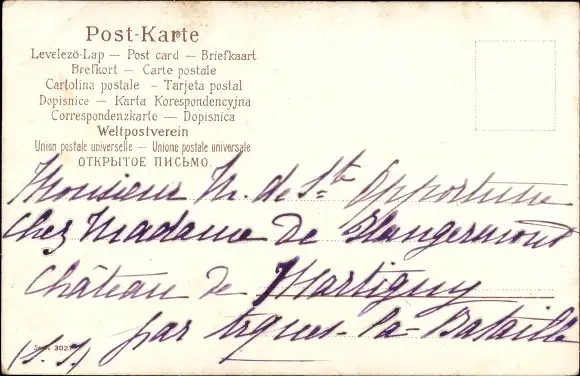 Post-Karte
Levelezö-Lap — Post card — Briefkaart
Brefkort — Carte postale
Cartolina postale — Tarjeta postal
Dopisnice — Karta Korespondencyjna
Correspondenzkarte — Dopisnica
Weltpostverein
Union postale universelle — Unione postale universale
ОТКРЫТОЕ ПИСЬМО.
Monsieur M. de Ste Opportune
chez Madame de
Château de Martigny
par Arques-la-Bataille
(S. I.)